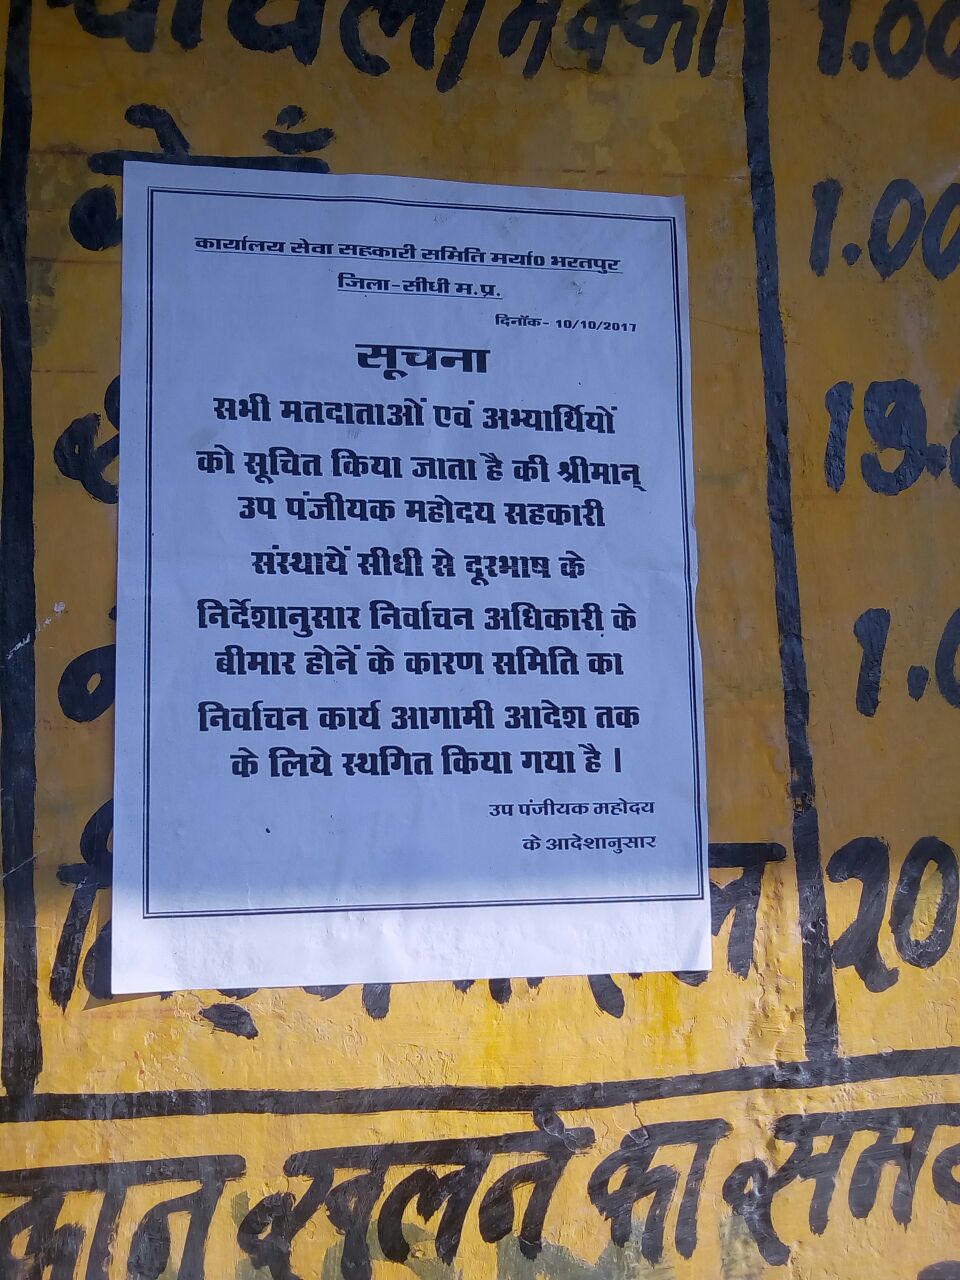 चावल/मक्का 1.00
1.00
19
1.0
20
कार्यालय सेवा सहकारी समिति मर्या0 भरतपुर
जिला-सीधी म.प्र.
दिनॉक- 10/10/2017
सूचना
सभी मतदाताओं एवं अभ्यार्थियों
को सूचित किया जाता है की श्रीमान्
उप पंजीयक महोदय सहकारी
संस्थायें सीधी से दूरभाष के
निर्देशानुसार निर्वाचन अधिकारी के
बीमार होनें के कारण समिति का
निर्वाचन कार्य आगामी आदेश तक
के लिये स्थगित किया गया है ।
उप पंजीयक महोदय
के आदेशानुसार
खुलने का समय